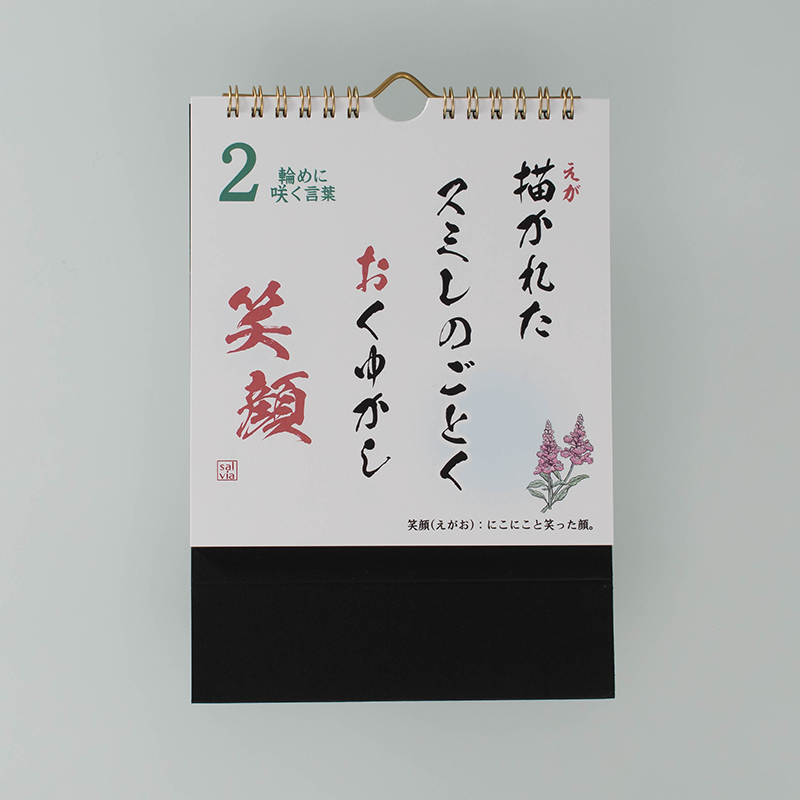 2
輪めに
咲く言葉
えが
描かれた
スミレのごとく
おくゆかし
笑顔
sal
via
笑顔(えがお):にこにこと笑った顔。